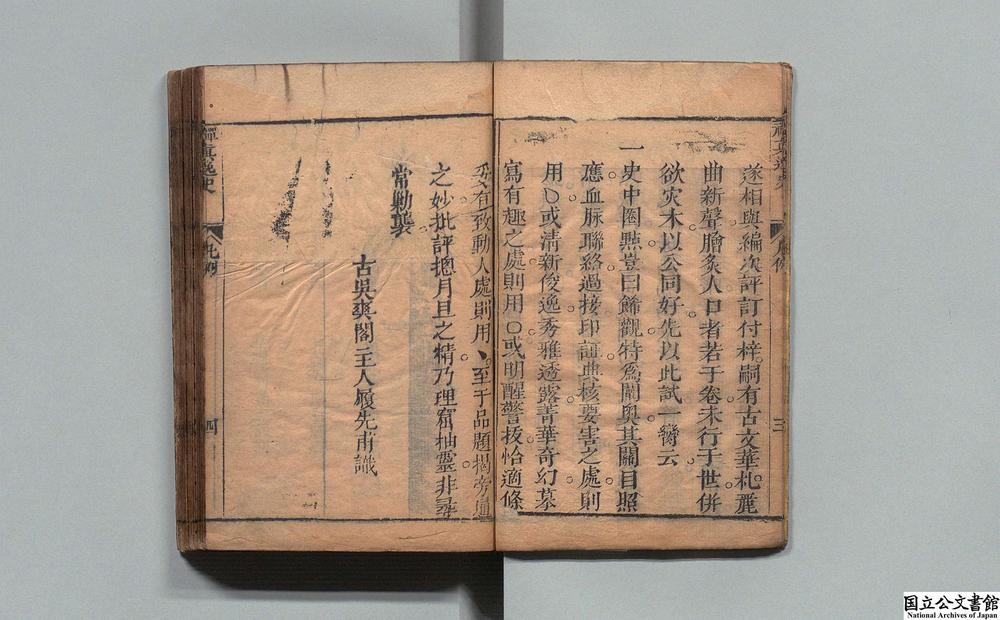 禪真逸史
凡例
三
遂相與編次評訂付梓。嗣有古文華札。麗
曲新聲。膾炙人口者若干卷。未行于世。併
欲灾木以公同好。先以此試一臠云
一史中圈點。豈曰飾觀。特為闡奧。其關目照
應。血脉聯絡。過接印証。典核要害之處。則
用乀。或清新俊逸。秀雅透露。菁華奇幻。摹
寫有趣之處。則用○。或明醒警拔。恰適條
妥。有致動人處。則用丶。至于品題揭旁通
之妙。批評摠月旦之精。乃理窟抽靈。非尋
常勦襲。
古吳爽閣主人履先甫識
禪真逸史
凡例
四
国立公文書館
National Archives of Japan